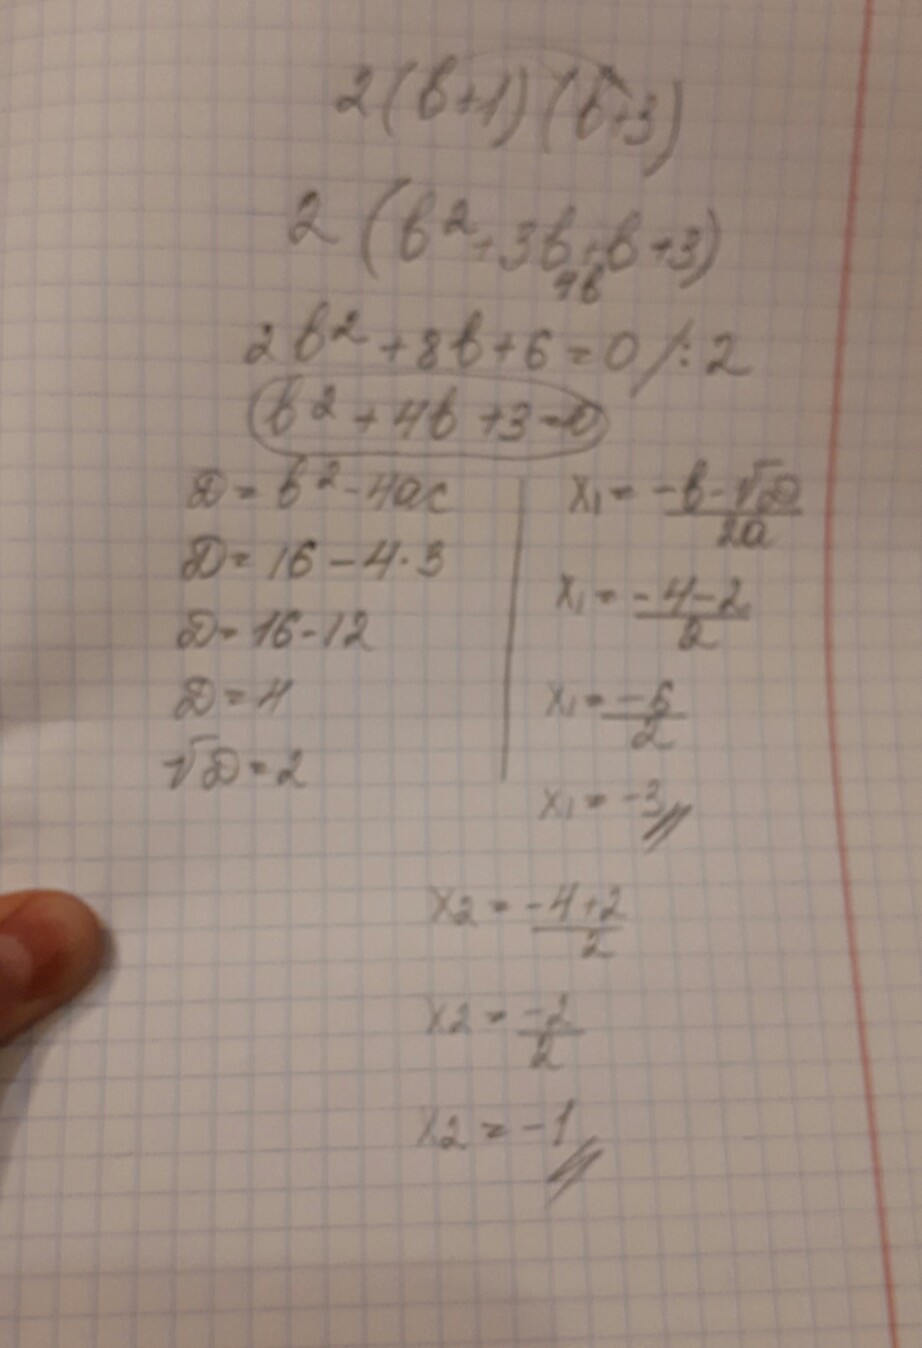 2(b+1)(b+3)
2(b²+3b+b+3)
4b
2b²+8b+6=0/:2
b²+4b+3=0
D=b²-4ac
D=16-4·3
D=16-12
D=4
√D=2
x₁=\frac{-b-√D}{2a}
x₁=\frac{-4-2}{2}
x₁=\frac{-6}{2}
x₁=-3
x₂=\frac{-4+2}{2}
x₂=\frac{-2}{2}
x₂=-1